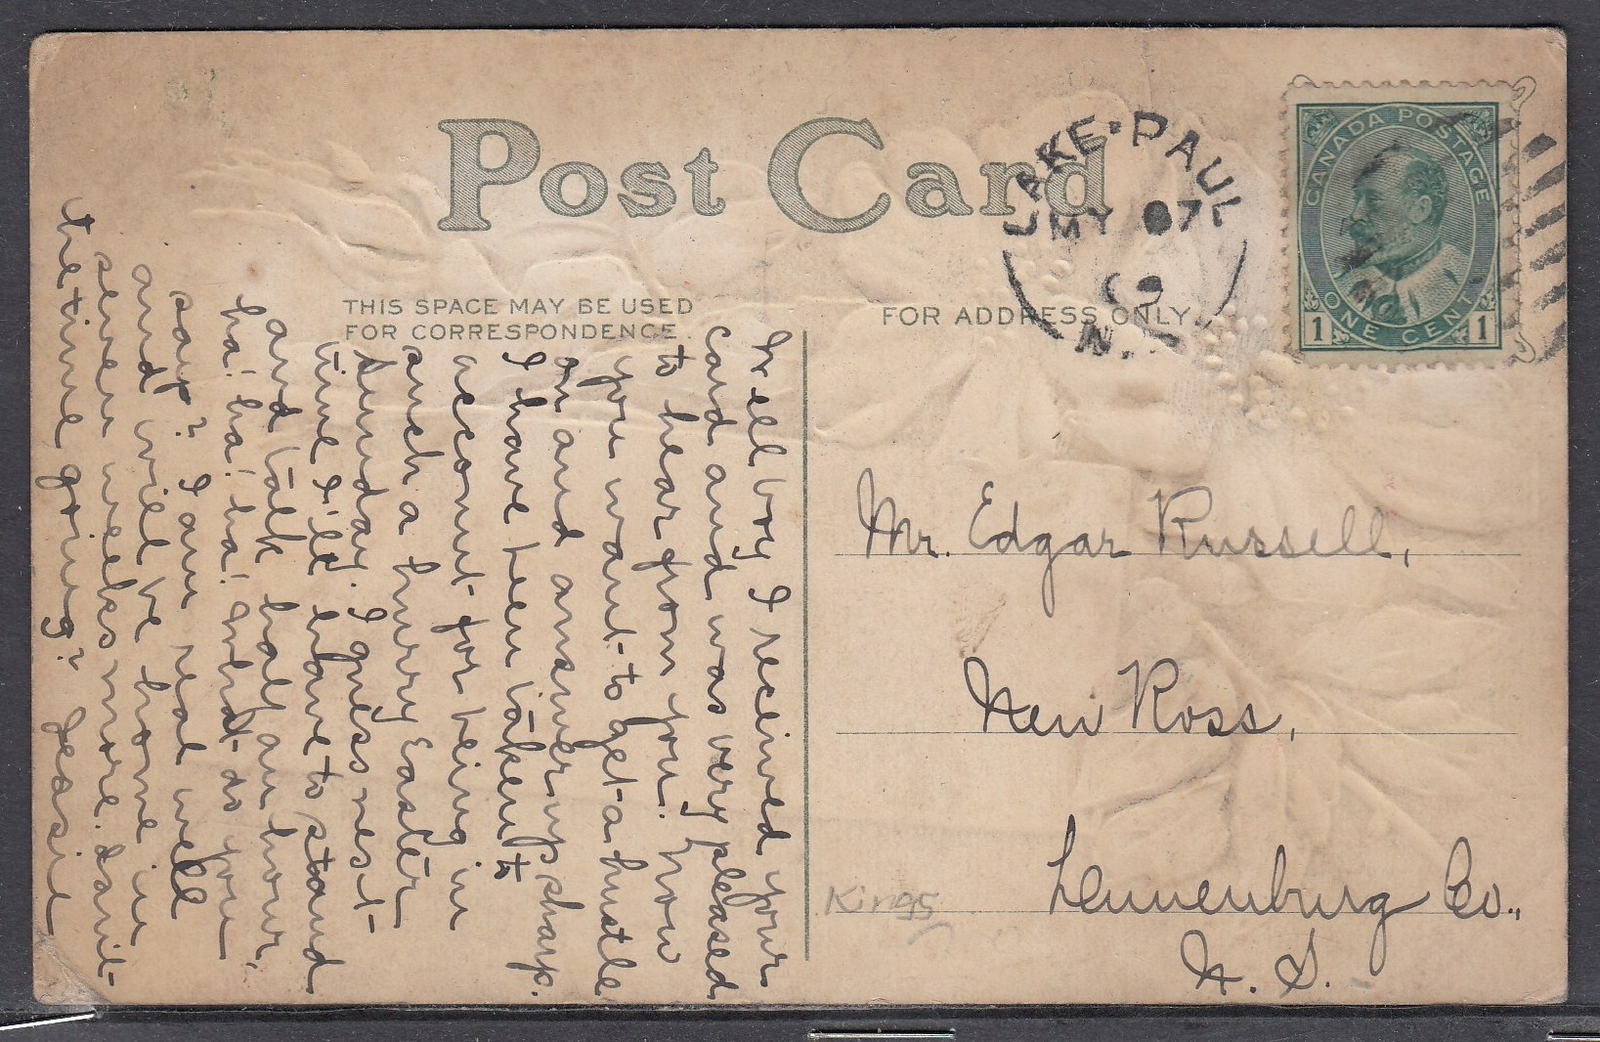 Post Card
THIS SPACE MAY BE USED
FOR CORRESPONDENCE.
FOR ADDRESS ONLY.
LAKE PAUL
MY 07
09
N.
CANADA POSTAGE
ONE CENT
1 1
Well boy I received your
card and was very pleased
to hear from you. Now
you want to get a hustle
on and answer up sharp.
I have been taken to
account for being in
such a hurry Easter
Sunday. I guess next
time I'll have to stand
and talk half an hour,
ha! ha! ha! What do you
say? I am real well
and will be home in
seven weeks more. Isn't
the time going? Jessie
Mr. Edgar Russell,
New Ross,
Lunenburg Co.,
N. S.
Kings